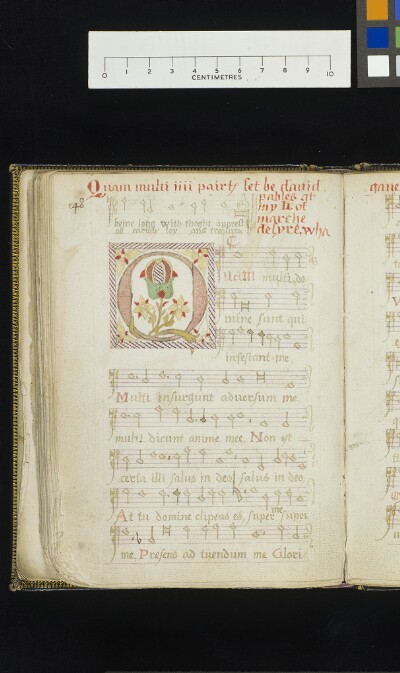 0 1 2 3 4 5 6 7 8 9 10
CENTIMETRES
Quam multi iiii pairtꝭ set be dauid
pables qt
my lꝭ of
marche
desyre, wha
48
beine long with thoght opprest
Uam multi do
mine sunt qui
infestant me,
Multi insurgunt adversum me
multi dicunt anime mee, Non est
certa illi salus in deo, salus in deo,
At tu domine clipeus es, super me super
me, Presens ad tuendum me Glori
gaue